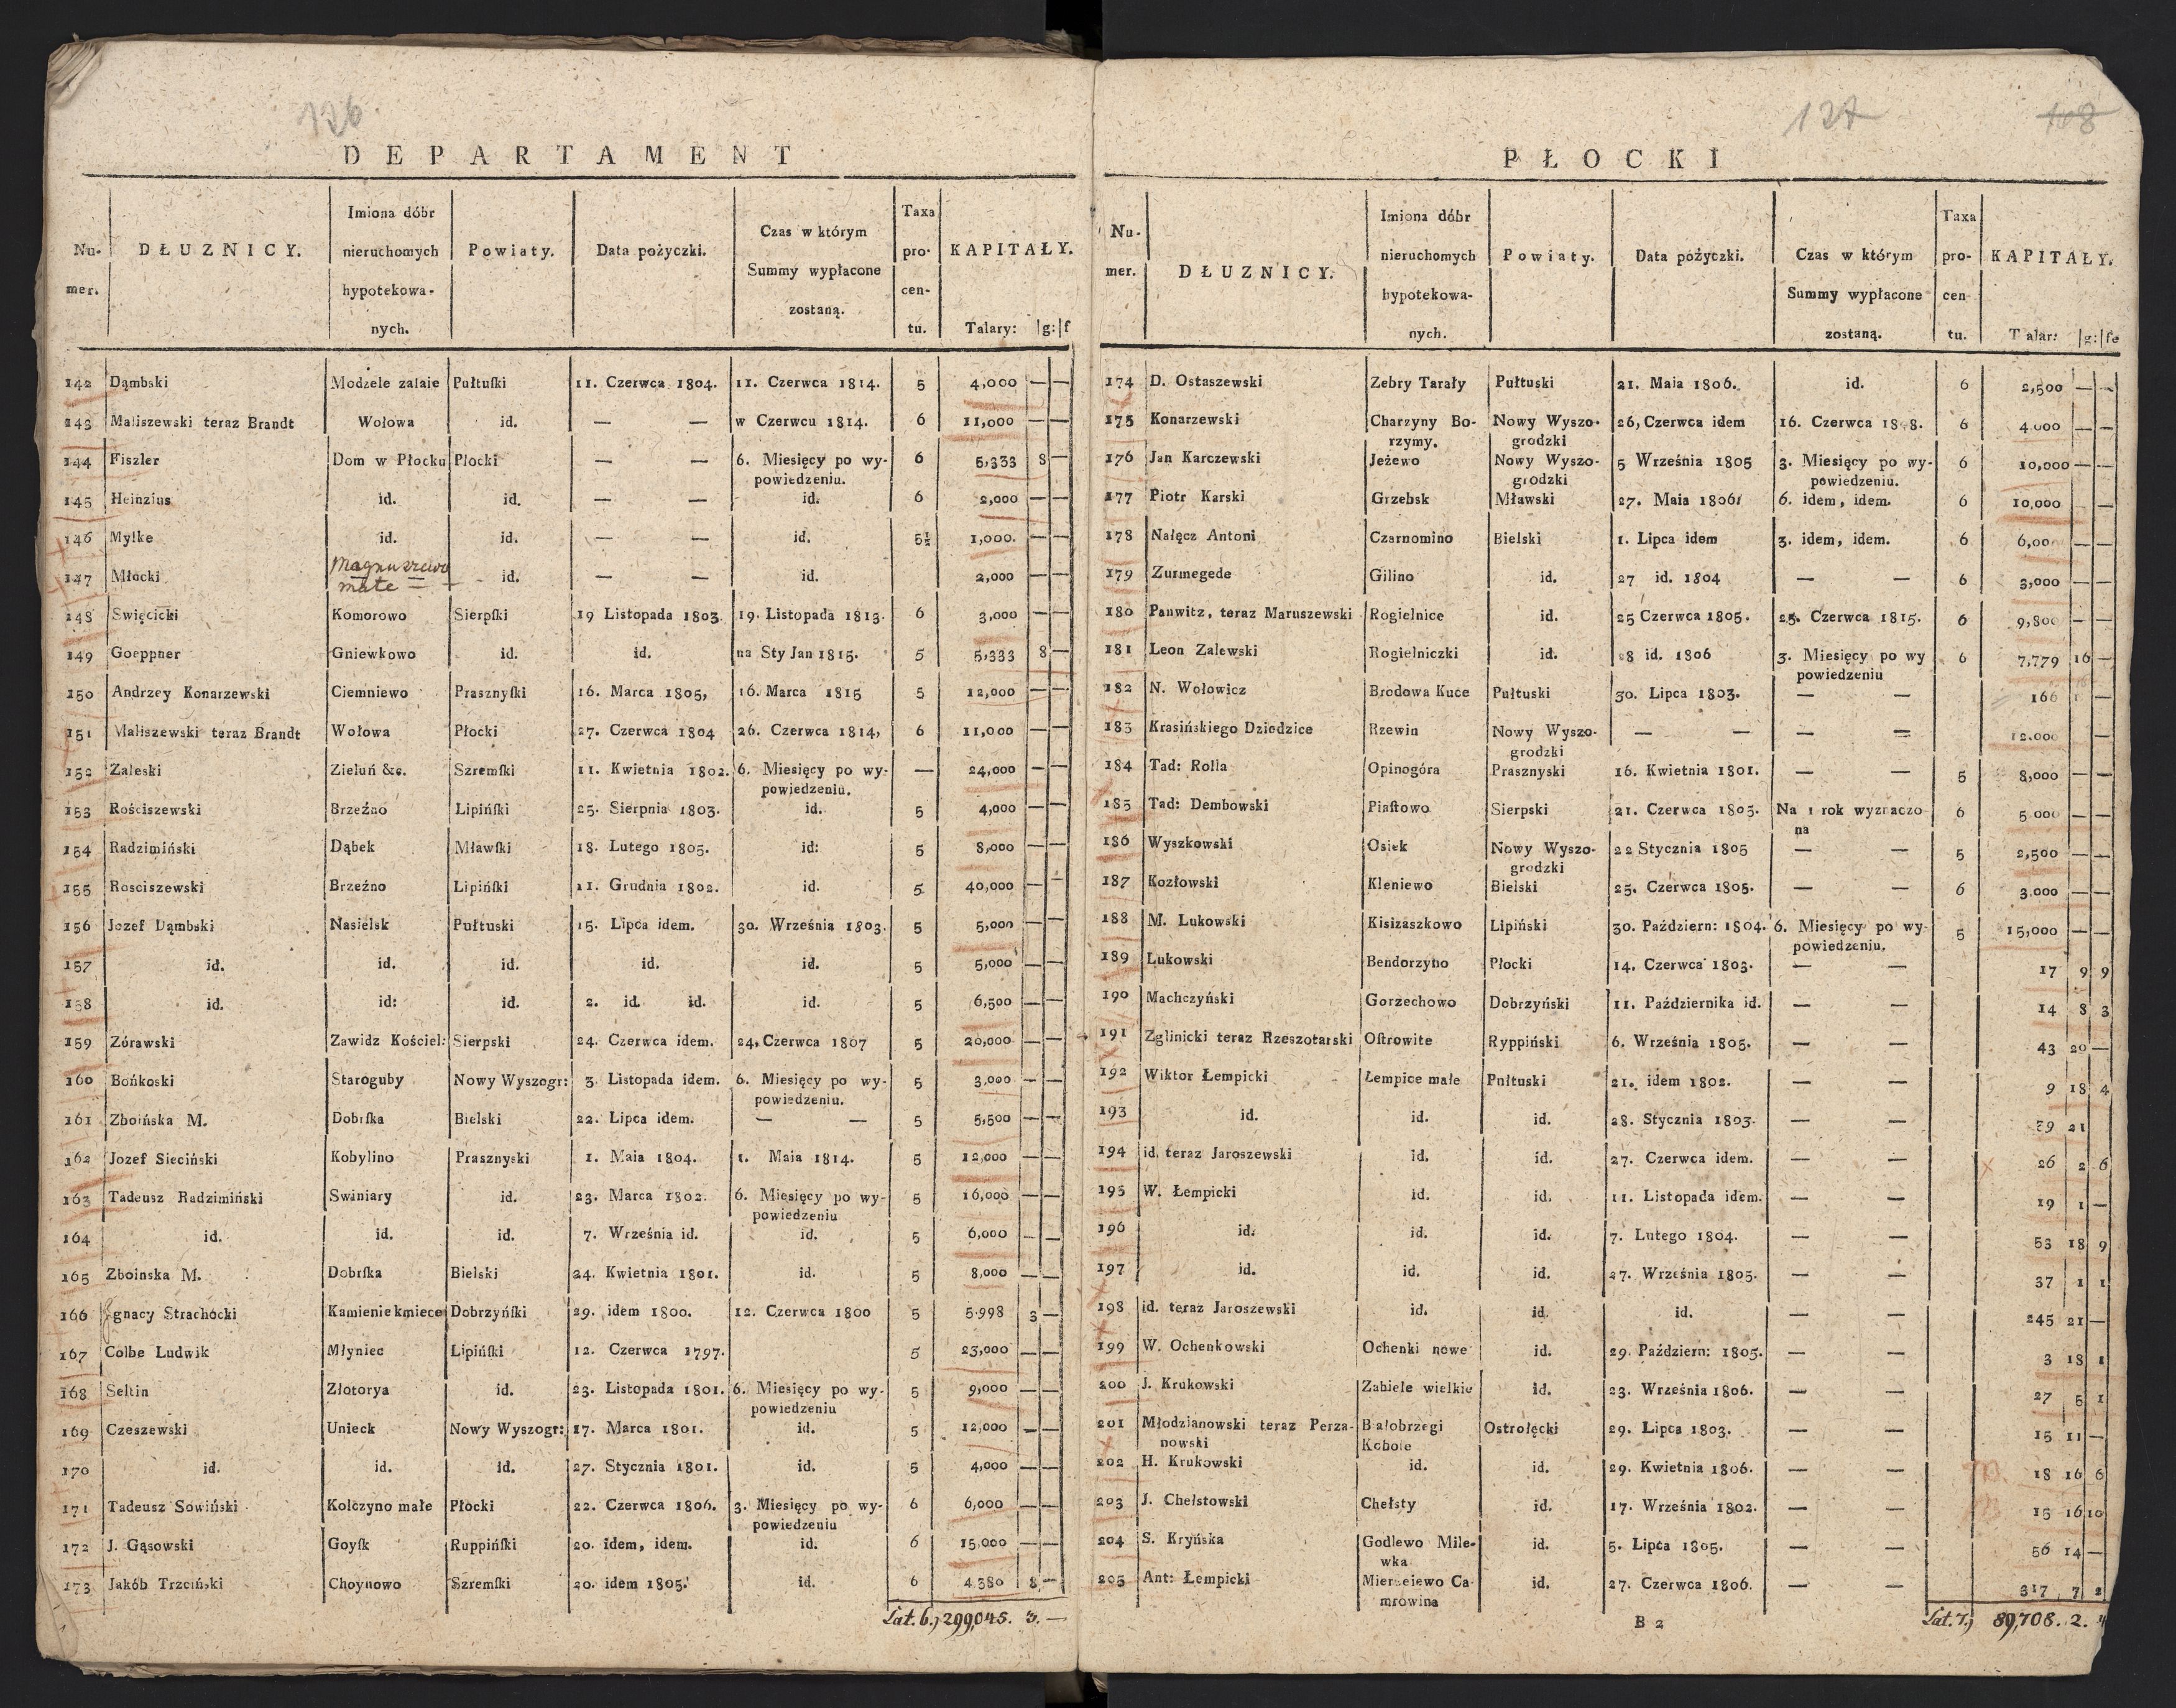 126
DEPARTAMENT
Nu-
mer.
DŁUZNICY.
Imiona dóbr
nieruchomych
hypotekowa-
nych.
Powiaty.
Data pożyczki.
Czas w którym
Summy wypłacone
zostaną.
Taxa
pro-
cen-
tu.
KAPITAŁY.
Talary: g: f
142 Dąmbski Modzele zalaie Pułtuſki 11. Czerwca 1804. 11. Czerwca 1814. 5 4,000 — —
143 Maliszewski teraz Brandt Wołowa id. — — w Czerwcu 1814. 6 11,000 — —
144 Fiszler Dom w Płocku Płocki — — 6. Miesięcy po wy- 6 5,333 8 —
powiedzeniu.
145 Heinzius id. id. — — id. 6 2,000 — —
146 Mylke id. id. — — id. 5½ 1,000. — —
147 Młocki Magnuszewo id. — — id. 2,000 — —
małe
148 Swięcicki Komorowo Sierpſki 19 Listopada 1803. 19. Listopada 1813. 6 3,000 — —
149 Goeppner Gniewkowo id. id. na Sty Jan 1815. 5 5,333 8 —
150 Andrzey Konarzewski Ciemniewo Prasznyſki 16. Marca 1805, 16. Marca 1815 5 12,000 — —
151 Maliszewski teraz Brandt Wołowa Płocki 27. Czerwca 1804 26. Czerwca 1814, 6 11,000 — —
152 Zaleski Zieluń &c. Szremſki 11. Kwietnia 1802. 6. Miesięcy po wy- — 24,000 — —
powiedzeniu.
153 Rościszewski Brzeźno Lipińſki 25. Sierpnia 1803. id. 5 4,000 — —
154 Radzimiński Dąbek Mławſki 18. Lutego 1805. id: 5 8,000 — —
155 Rosciszewski Brzeźno Lipińſki 11. Grudnia 1802. id. 5 40,000 — —
156 Jozef Dąmbski Nasielsk Pułtuski 15. Lipca idem. 30. Września 1803. 5 5,000 — —
157 id. id. id. id. id. 5 5,000 — —
158 id. id: id. 2. id. id. id. 5 6,500 — —
159 Zórawski Zawidz Kościel: Sierpski 24. Czerwca idem. 24, Czerwca 1807 5 20,000 — —
160 Bońkoski Staroguby Nowy Wyszogr: 3. Listopada idem. 6. Miesięcy po wy- 5 3,000 — —
powiedzeniu.
161 Zboińska M. Dobrſka Bielski 22. Lipca idem. — — 5 5,500 — —
162 Jozef Sieciński Kobylino Prasznyski 1. Maia 1804. 1. Maia 1814. 5 12,000 — —
163 Tadeusz Radzimiński Swiniary id. 23. Marca 1802. 6. Miesięcy po wy- 5 16,000 — —
powiedzeniu
164 id. id. id. 7. Września id. id. 5 6,000 — —
165 Zboinska M. Dobrſka Bielski 24. Kwietnia 1801. id. 5 8,000 — —
166 Jgnacy Strachocki Kamienie kmiece Dobrzyńſki 29. idem 1800. 12. Czerwca 1800 5 5.998 3 —
167 Colbe Ludwik Młyniec Lipińſki 12. Czerwca 1797. 5 23,000 — —
168 Seltin Złotorya id. 23. Listopada 1801. 6. Miesięcy po wy- 5 9,000 — —
powiedzeniu
169 Czeszewski Unieck Nowy Wyszogr: 17. Marca 1801. id. 5 12,000 — —
170 id. id. id. 27. Stycznia 1801. id. 5 4,000 — —
171 Tadeusz Sowiński Kolczyno małe Płocki 22. Czerwca 1806. 3. Miesięcy po wy- 6 6,000 — —
powiedzeniu
172 J. Gąsowski Goyſk Ruppińſki 20. idem, idem. id. 6 15,000 — —
173 Jakób Trzciński Choynowo Szremſki 20. idem 1805. id. 6 4,380 8 —
Lat. 6., 299,045. 3. —
127 108
PŁOCKI
Nu-
mer.
DŁUZNICY.
Imiona dóbr
nieruchomych
hypotekowa-
nych.
Powiaty.
Data pożyczki.
Czas w którym
Summy wypłacone
zostaną.
Taxa
pro-
cen-
tu.
KAPITAŁY.
Talar: g: fe
174 D. Ostaszewski Zebry Tarały Pułtuski 21. Maia 1806. id. 6 2,500 — —
175 Konarzewski Charzyny Bo- Nowy Wyszo- 26, Czerwca idem 16. Czerwca 18 8. 6 4 000 — —
rzymy. grodzki
176 Jan Karczewski Jeżewo Nowy Wyszo- 5 Września 1805 3. Miesięcy po wy- 6 10,000 — —
grodzki powiedzeniu.
177 Piotr Karski Grzebsk Mławski 27. Maia 1806 6. idem, idem. 6 10,000 —
178 Nałęcz Antoni Czarnomino Bielski 1. Lipca idem 3. idem, idem. 6 6,00 — —
179 Zurmegede Gilino id. 27 id. 1804 — — 6 3,000 — —
180 Panwitz, teraz Maruszewski Rogielnice id. 25 Czerwca 1805. 25. Czerwca 1815. 6 9,800 — —
181 Leon Zalewski Rogielniczki id. 8 id. 1806 3. Miesięcy po wy 6 7,779 16 —
powiedzeniu
182 N. Wołowicz Brodowa Kuce Pułtuski 30. Lipca 1803. — — 166 —
183 Krasińskiego Dziedzice Rzewin Nowy Wyszo- — — — — 12.000 —
grodzki
184 Tad: Rolla Opinogóra Prasznyski 16. Kwietnia 1801. — — 5 8,000 — —
185 Tad: Dembowski Piaſtowo Sierpski 21. Czerwca 1805. Na 1 rok wyznaczo 6 5 000 — —
na
186 Wyszkowski Osiek Nowy Wyszo- 22 Stycznia 1805 — — 5 2,500 — —
grodzki
187 Kozłowski Kleniewo Bielski 25. Czerwca 1805. — — 6 3.000 — —
188 M. Lukowski Kisizaszkowo Lipiński 30. Październ: 1804. 6. Miesięcy po wy- 5 15,000 — —
powiedzeniu.
189 Lukowski Bendorzyno Płocki 14. Czerwca 1803. — — 17 9 9
190 Machczyński Gorzechowo Dobrzyński 11. Października id. — — 14 8 3
191 Zglinicki teraz Rzeszotarski Oſtrowite Ryppiński 6. Września 1805. — — 43 20 —
192 Wiktor Łempicki Łempice małe Pułtuski 21. idem 1802. — — 9 18 4
193 id. id. id. 28. Stycznia 1803. — — 79 21
194 id. teraz Jaroszewski id. id. 27. Czerwca idem. — — 26 2 6
195 W. Łempicki id. id. 11. Listopada idem. — — 19 1 —
196 id. id. id. 7. Lutego 1804. — — 53 18 9
197 id. id. id. 27. Września 1805. — — 37 1 1
198 id. teraz Jaroszewski id. id. id. — — 245 21 —
199 W. Ochenkowski Ochenki nowe id. 29. Październ: 1805. — — 3 18 1
200 J. Krukowski Zabiele wielkie id. 23. Września 1806. — — 27 5 1
201 Młodzianowski teraz Perza- Białobrzegi Ostrołęcki 29. Lipca 1803. — — 15 11 —
nowski Kobole
202 H. Krukowski id. id. 29. Kwietnia 1806. — — 18 16 6
203 J. Chełstowski Chełsty id. 17. Września 1802. — — 15 16 10
204 S. Kryńska Godlewo Mile- id. 5. Lipca 1805. — — 56 14 —
wka
205 Ant: Łempicki Mierzeiewo Ca- id. 27. Czerwca 1806. — — 317 7 2
mrowina
B 2
Lat. 7., 89,708. 2. 4